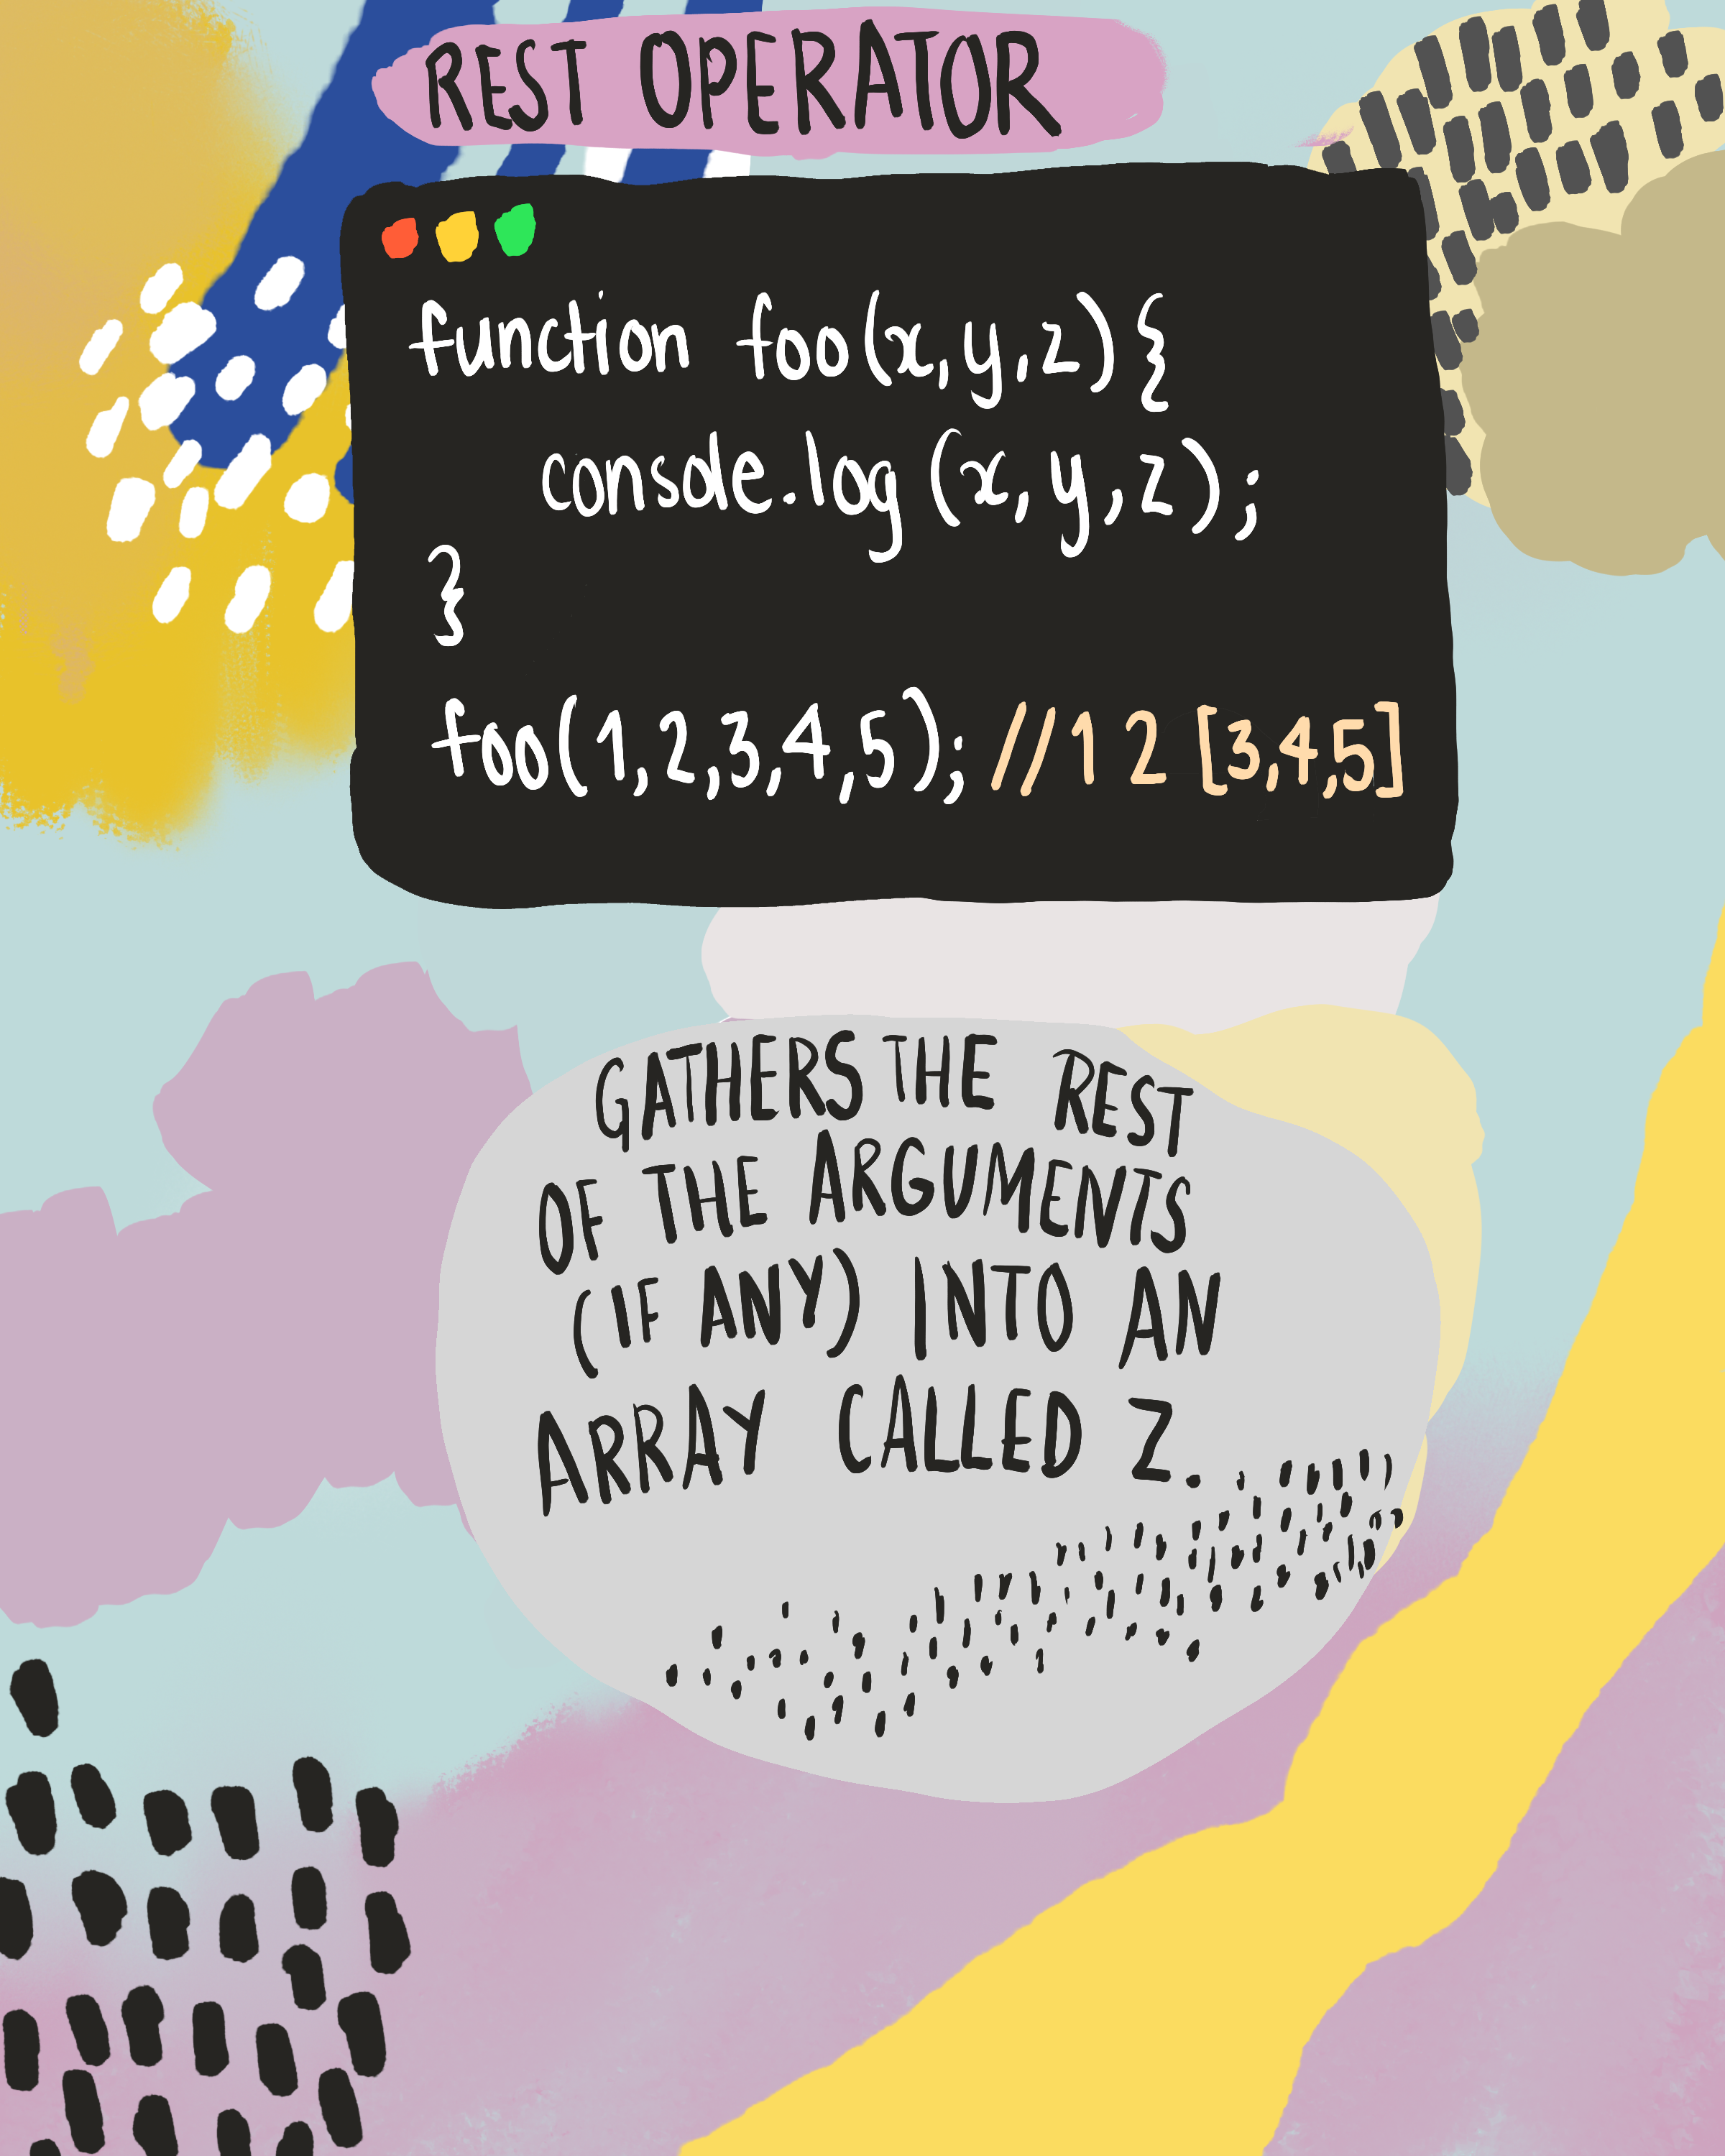 REST OPERATOR
function foo(x,y,z){
console.log(x,y,z);
}
foo(1,2,3,4,5); // 1 2 [3,4,5]
GATHERS THE REST
OF THE ARGUMENTS
(IF ANY) INTO AN
ARRAY CALLED Z.